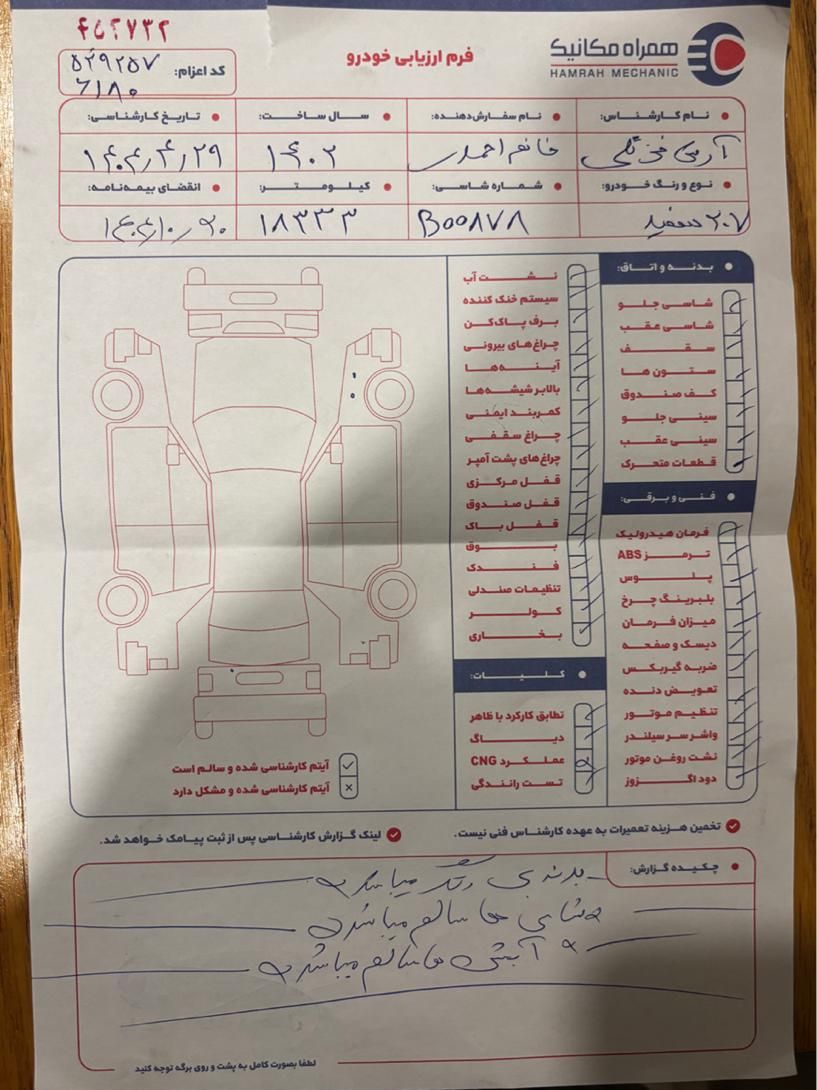 ۴۵۲۷۳۲
همراه مکانیک
HAMRAH MECHANIC
فرم ارزیابی خودرو
کد اعزام: ۵۴۹۲۵۷
۶۱۸۰
نام کارشناس:
نام سفارش‌دهنده: خانم احمدی
سال ساخت: ۱۴۰۲
تاریخ کارشناسی: ۱۴۰۴/۴/۲۹
نوع و رنگ خودرو: ۲۰۷ سفید
شماره شاسی: B00878
کیلومتر: ۱۸۳۳۳
انقضای بیمه‌نامه:
بدنه و اتاق:
شاسی جلو
شاسی عقب
سقف
ستون ها
کف صندوق
سینی جلو
سینی عقب
قطعات متحرک
فنی و برقی:
فرمان هیدرولیک
ترمز ABS
پلوس
بلبرینگ چرخ
میزان فرمان
دیسک و صفحه
ضربه گیربکس
تعویض دنده
تنظیم موتور
واشر سر سیلندر
نشت روغن موتور
دود اگزوز
نشت آب
سیستم خنک کننده
برف پاک‌کن
چراغ‌های بیرونی
آینه‌ها
بالابر شیشه‌ها
کمربند ایمنی
چراغ سقفی
چراغ‌های پشت آمپر
قفل مرکزی
قفل صندوق
قفل باک
بوق
فندک
تنظیمات صندلی
کولر
بخاری
کلیات:
تطابق کارکرد با ظاهر
دیاگ
عملکرد CNG
تست رانندگی
آیتم کارشناسی شده و سالم است
آیتم کارشناسی شده و مشکل دارد
تخمین هزینه تعمیرات به عهده کارشناس فنی نیست.
لینک گزارش کارشناسی پس از ثبت پیامک خواهد شد.
چکیده گزارش:
بدنه بی رنگ میباشد
شاسی ها سالم میباشد
ها سالم میباشد
لطفا بصورت کامل به پشت و روی برگه توجه کنید